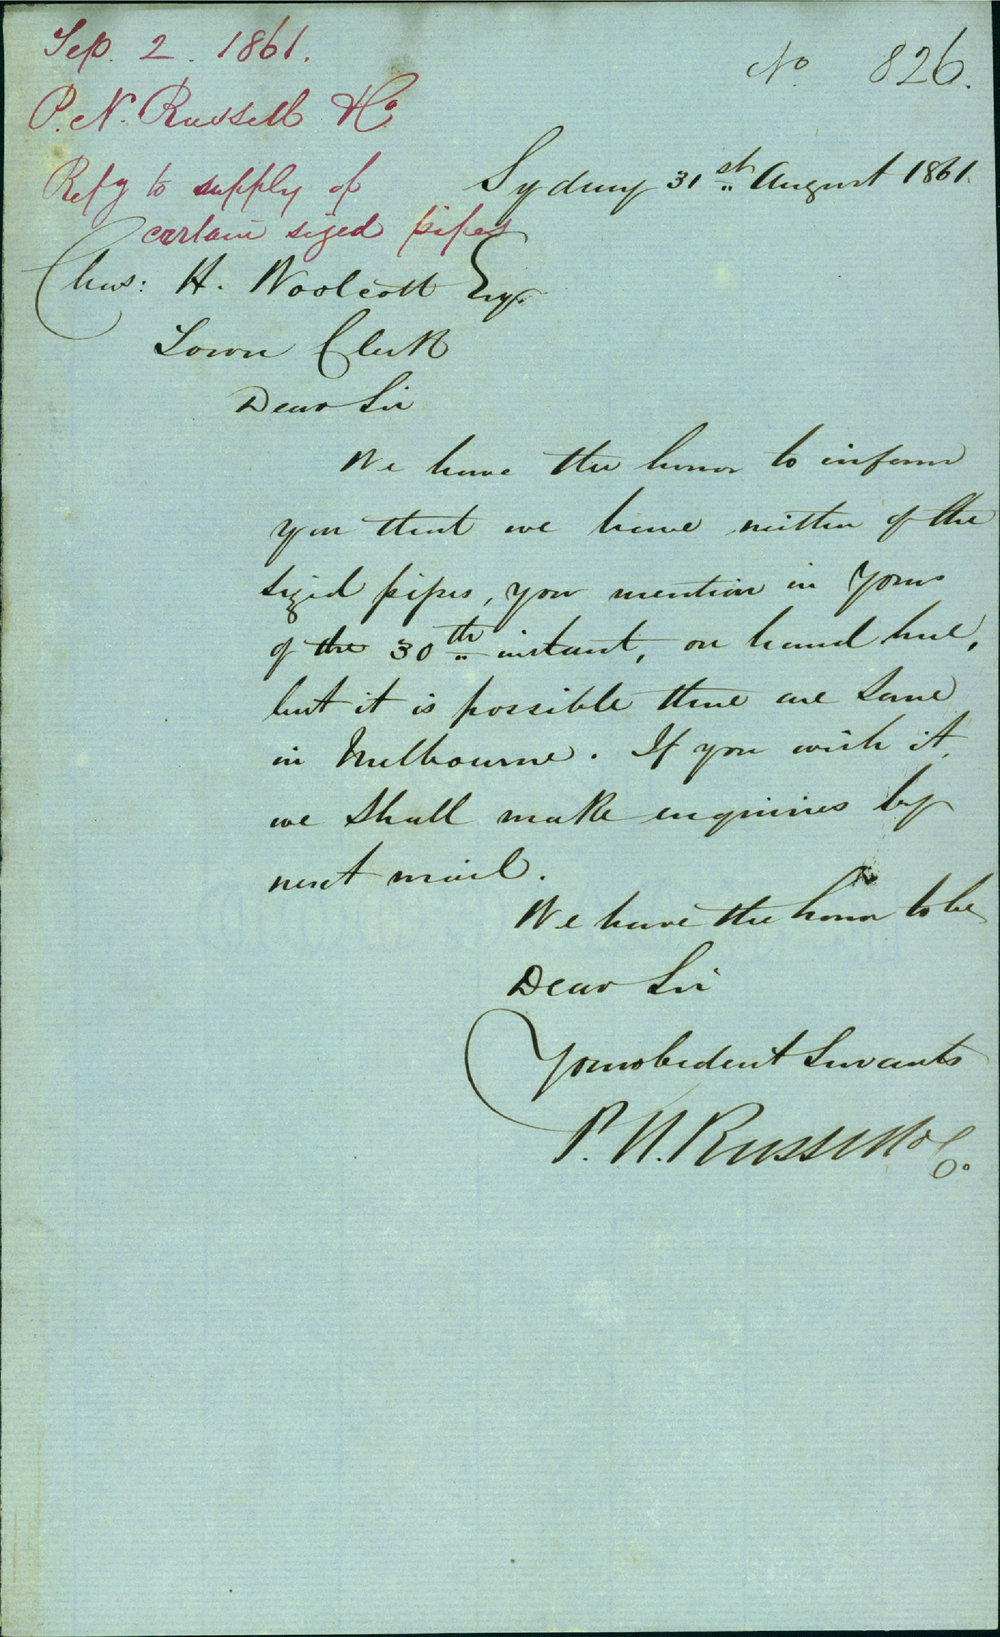 Sep. 2. 1861.
No 826.
P. N. Russell & Co
Refg to supply of
certain sized pipes
Sydney 31st August 1861.
Chas: H. Woolcott Esqr.
Town Clerk
Dear Sir
We have the honor to inform
you that we have neither of the
sized pipes, you mention in Yours
of the 30th instant, on hand here,
but it is possible there are some
in Melbourne. If you wish it,
we shall make enquiries by
next mail.
We have the honor to be
Dear Sir
Your obedient Servants
P. N. Russell & Co.